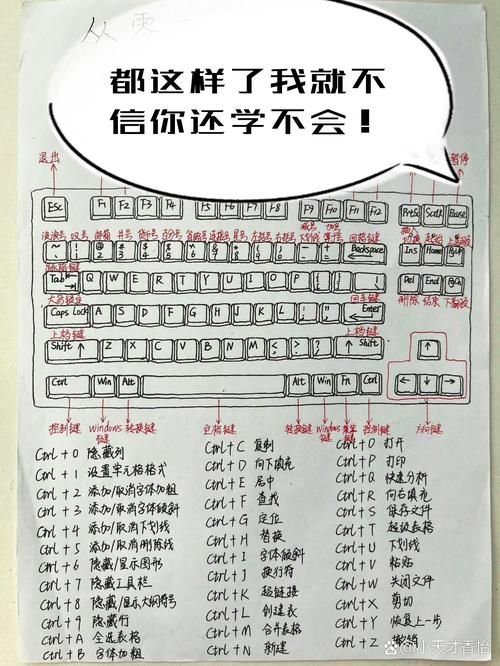 从零
都这样了我就不
信你还学不会！
退出
暂停
Esc F1 F2 F3 F4 F5 F6 F7 F8 F9 F10 F11 F12 PrtSc ScrLk Pause
波浪号 叹号 邮箱 井号 货币号 百分号 省略号 连接号 星号 左括号 右括号 下划线 等号 回格键
减号 加号
插入
切换 起始 上翻页
~ ! @ # $ % ^ & * ( ) _ + Backspace
2 3 4 5 6 7 8 9 0 - =
Ins Home PgUp
Tab Q W E R T Y U I O P
Del End PgDn
删除 结束 下翻页
大写锁定
回车键
Caps Lock A S D F G H J K L Enter
上档键
上档键
Shift Z X C V B N M Shift
Ctrl Win Alt Alt Win Fn Ctrl
控制键 windows键 转换键 空格键 转换键 windows键 菜单键 控制键 方向键
Ctrl + 0 隐藏列
Ctrl + 1 设置单元格格式
Ctrl + 2 添加/取消字体加粗
Ctrl + 3 添加/取消字体倾斜
Ctrl + 4 添加/取消下划线
Ctrl + 5 添加/取消删除线
Ctrl + 6 隐藏/显示图形
Ctrl + 7 隐藏工具栏
Ctrl + 8 隐藏/显示大纲符号
Ctrl + 9 隐藏行
Ctrl + A 全选表格
Ctrl + B 字体加粗
Ctrl + C 复制
Ctrl + D 向下填充
Ctrl + E 居中
Ctrl + F 查找
Ctrl + G 定位
Ctrl + H 替换
Ctrl + I 字体倾斜
Ctrl + J 换行符
Ctrl + K 超链接
Ctrl + L 创建表
Ctrl + M 合并表格
Ctrl + N 新建
Ctrl + O 打开
Ctrl + P 打印
Ctrl + Q 快速分析
Ctrl + R 向右填充
Ctrl + S 保存文件
Ctrl + T 超级表格
Ctrl + U 下划线
Ctrl + V 粘贴
Ctrl + W 关闭文件
Ctrl + X 剪切
Ctrl + Y 恢复上一步
Ctrl + Z 撤销
@小天才香怡